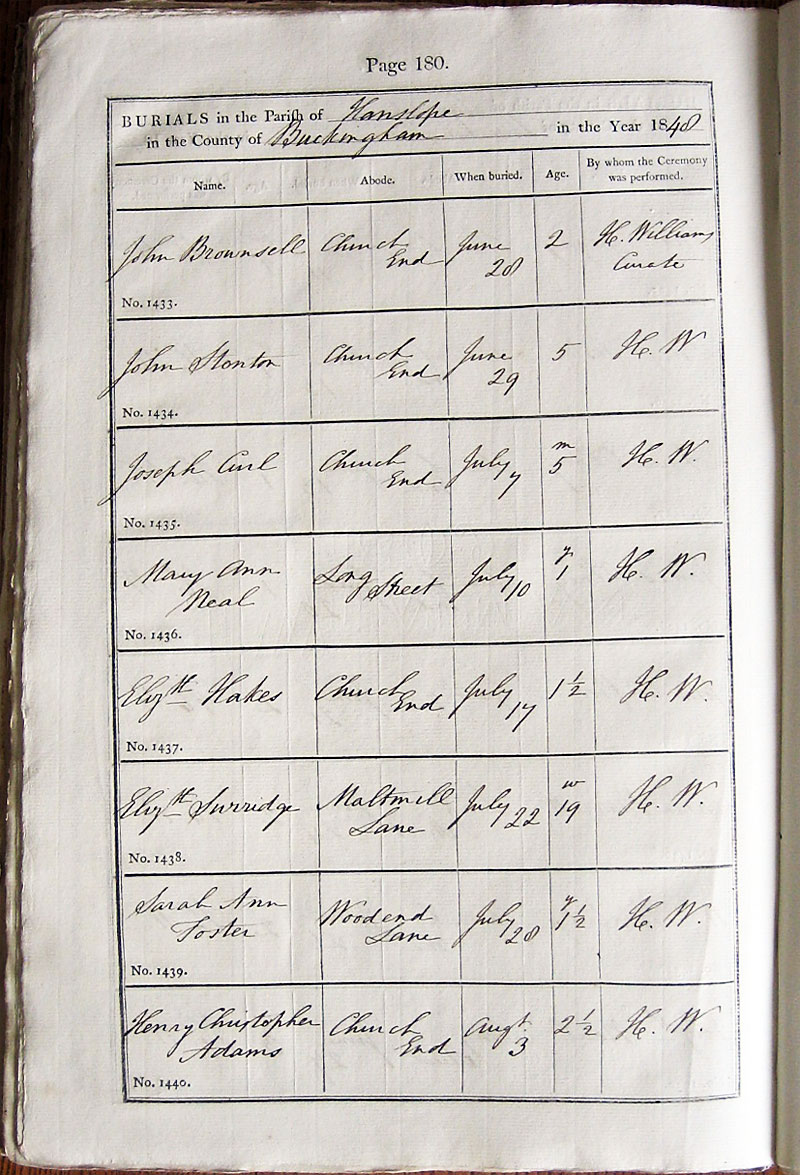 Page 180.
BURIALS in the Parish of Hanslope
in the County of Buckingham in the Year 1848
Name. Abode. When buried. Age. By whom the Ceremony was performed.
John Brownsell Church End June 28 2 H. Williams Curate
No. 1433.
John Stonton Church End June 29 5 H. W
No. 1434.
Joseph Curl Church End July 7 m 5 H. W.
No. 1435.
Mary Ann Neal Long Street July 10 y 1 H. W.
No. 1436.
Elizth Hakes Church End July 17 1½ H. W.
No. 1437.
Elizth Surridge Maltmill Lane July 22 w 19 H. W.
No. 1438.
Sarah Ann Foster Woodend Lane July 28 y 1½ H. W.
No. 1439.
Henry Christopher Adams Church End Augt. 3 2½ H. W.
No. 1440.